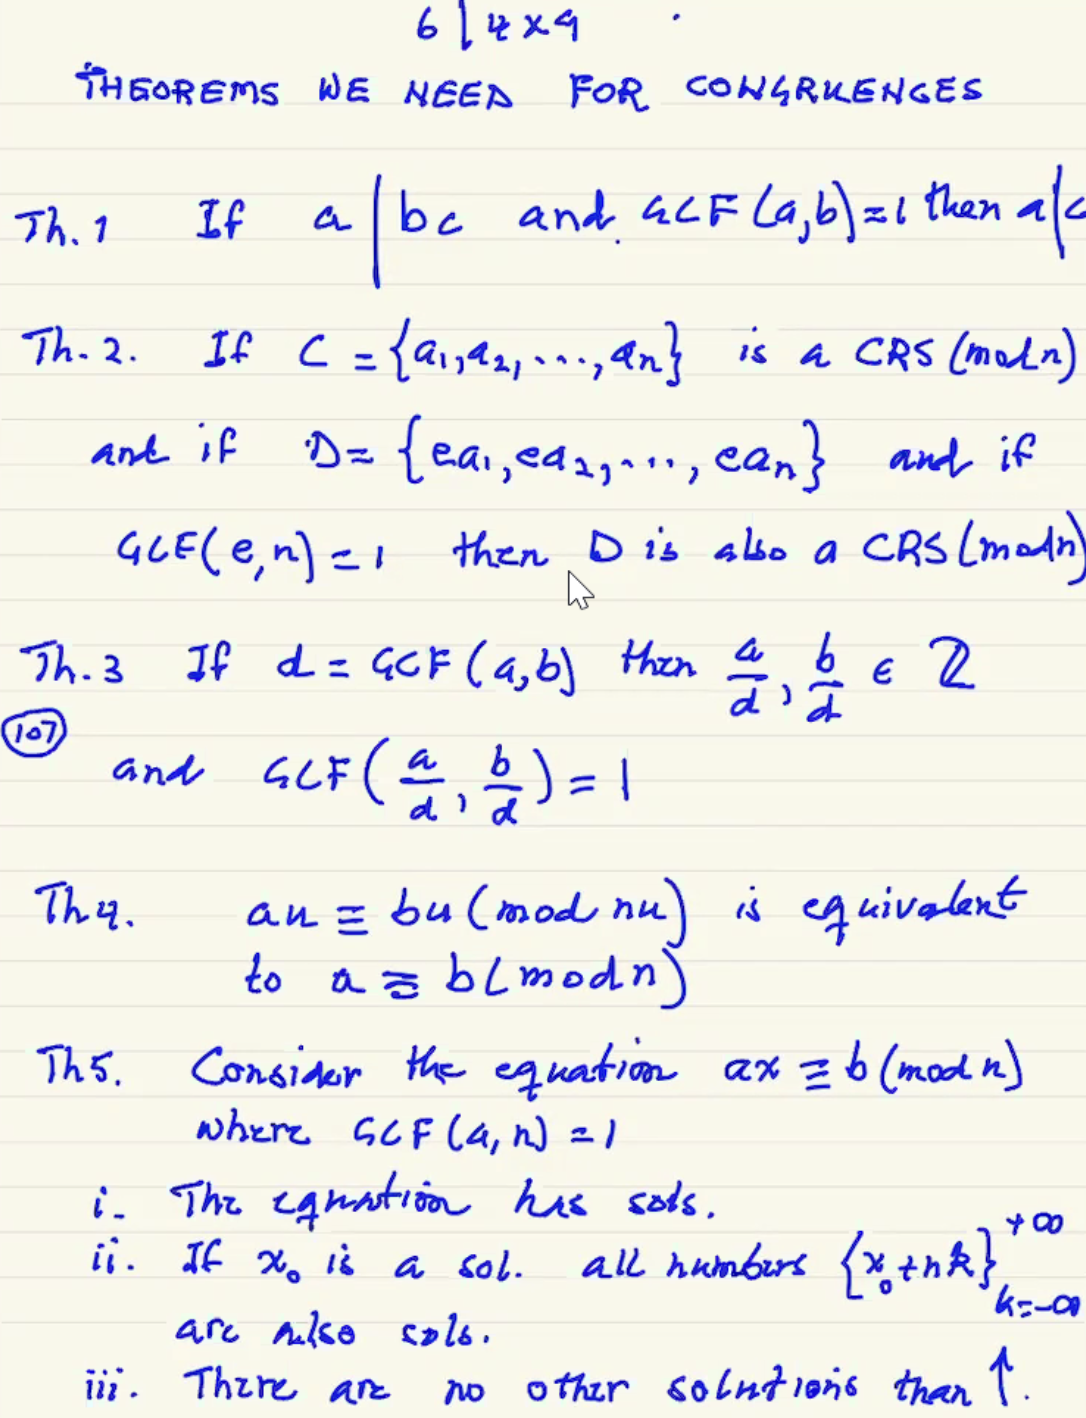 6 | 4 x 9
THEOREMS WE NEED FOR CONGRUENCES
Th. 1 If a | bc and GCF (a,b) = 1 then a | c
Th. 2. If C = {a₁, a₂, ..., aₙ} is a CRS (mod n)
and if D = {ea₁, ea₂, ..., eaₙ} and if
GCF(e, n) = 1 then D is also a CRS (mod n)
Th. 3 If d = GCF (a, b) then a/d, b/d ∈ ℤ
107
and GCF (a/d, b/d) = 1
Th 4. au ≡ bu (mod nu) is equivalent
to a ≡ b (mod n)
Th 5. Consider the equation ax ≡ b (mod n)
where GCF (a, n) = 1
i. The equation has sols.
ii. If x₀ is a sol. all numbers {x₀ + nk} +∞ k=-∞
are also sols.
iii. There are no other solutions than ↑.